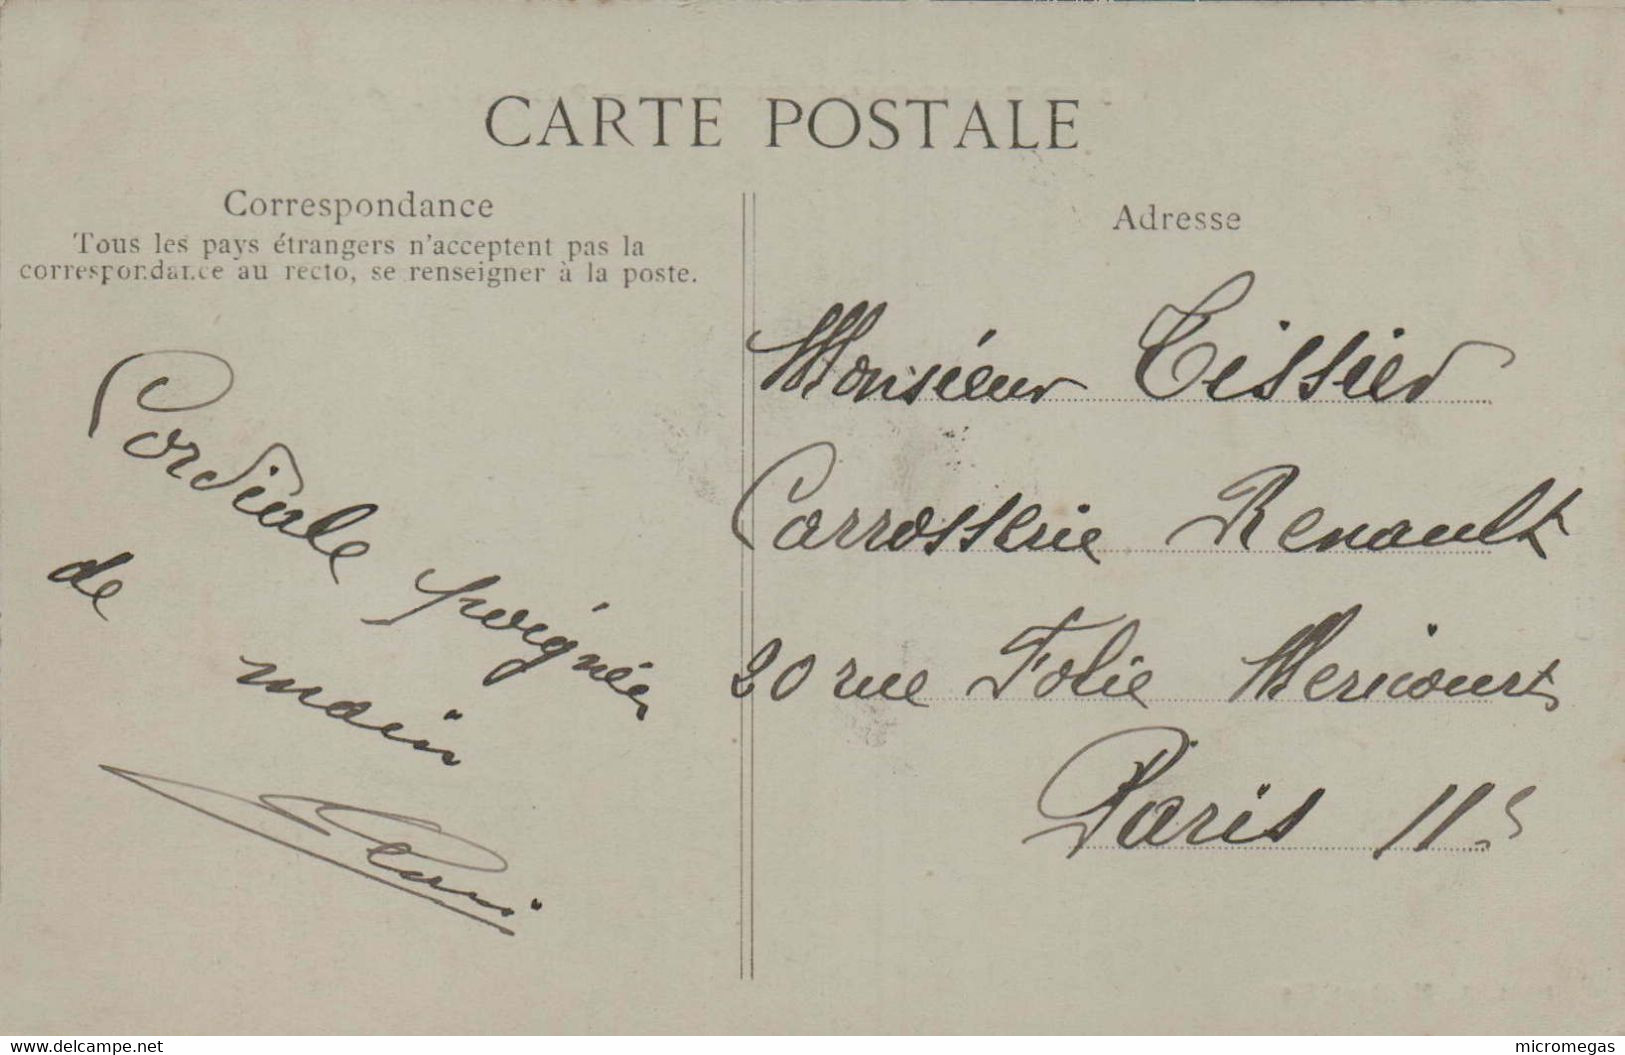 CARTE POSTALE
Correspondance
Tous les pays étrangers n'acceptent pas la
correspondance au recto, se renseigner à la poste.
Cordiale poignée
de main
Adresse
Monsieur Tissier
Carrosserie Renault
20 rue Folie Mericourt
Paris 11e
www.delcampe.net
micromegas